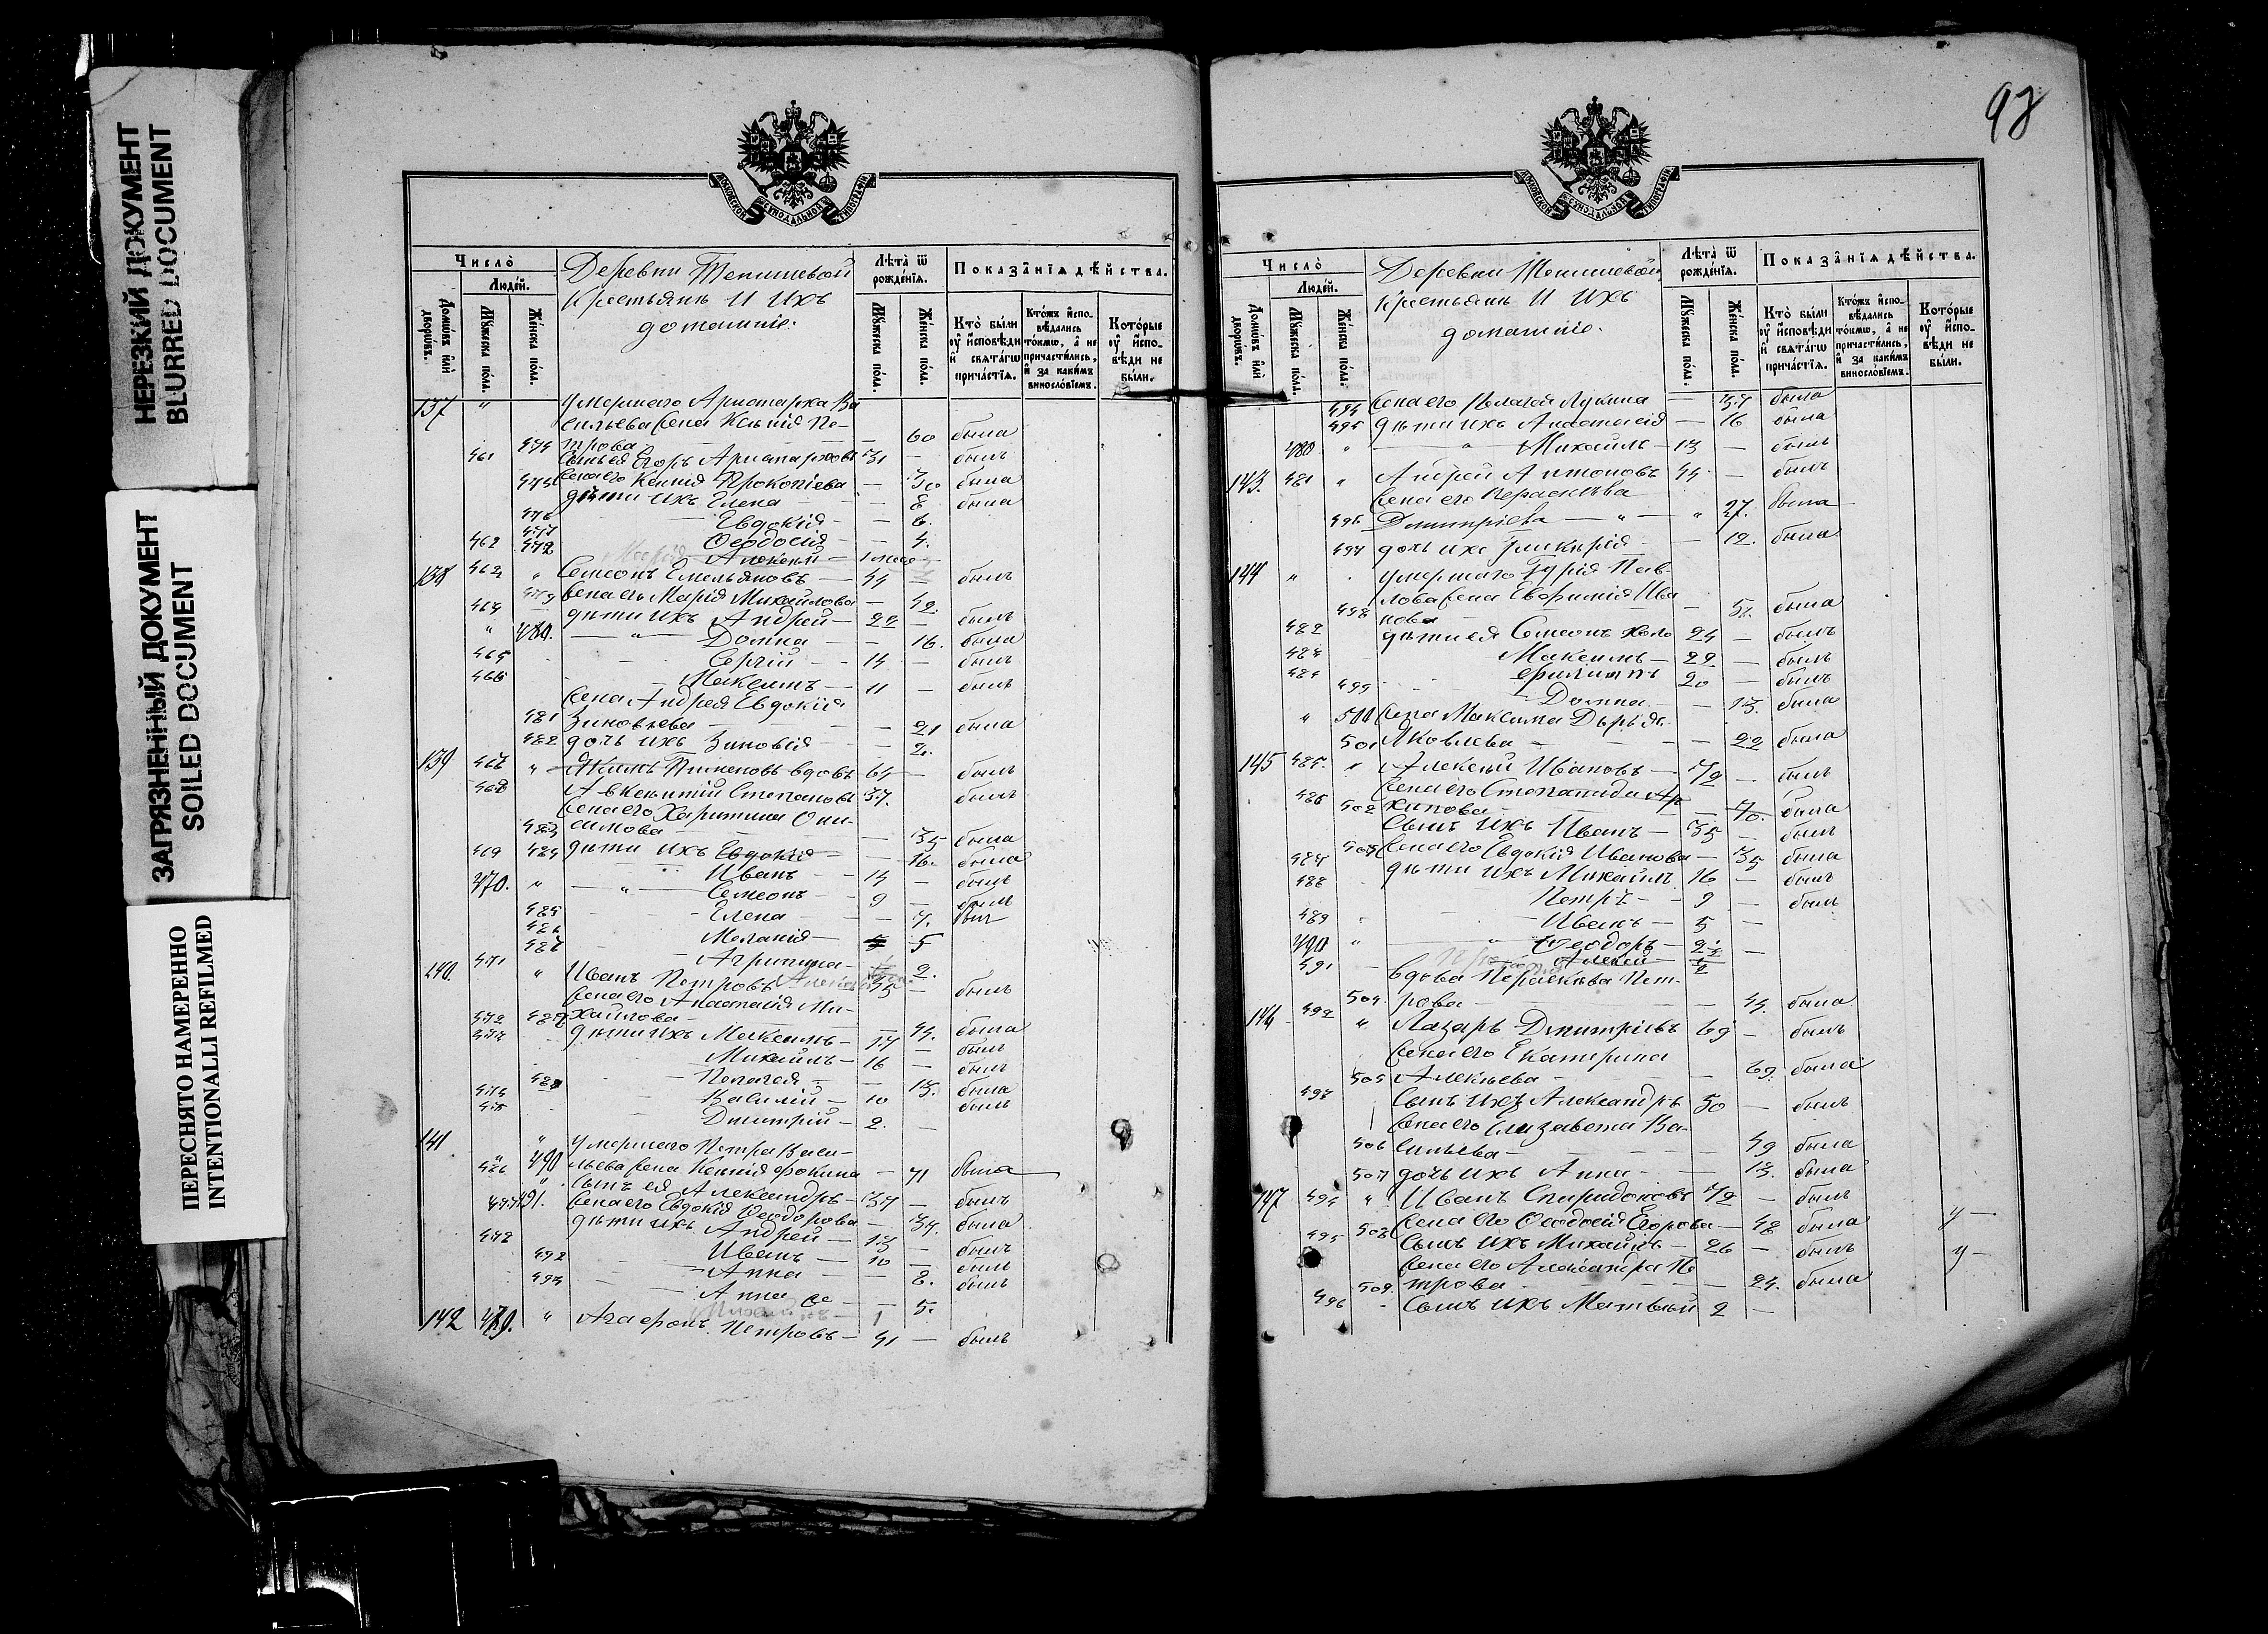 НЕРЕЗКИЙ ДОКУМЕНТ
BLURRED DOCUMENT
ЗАГРЯЗНЕННЫЙ ДОКУМЕНТ
SOILED DOCUMENT
ПЕРЕСНЯТО НАМЕРЕННО
INTENTIONALLI REFILMED
МОСКОВСКОЙ СѴНОДАЛЬНОЙ ТИПОГРАФІИ
Число̀
Людей.
Домѡвъ или дворѡвъ.
Мꙋжеска полꙋ.
Женска полꙋ.
Деревни Тепишевой
Крестьянъ и ихъ
домашніе.
Лѣта̀ ѿ рождéнїѧ.
Мꙋжеска полꙋ.
Женска полꙋ.
Показа̂нїѧ дѣйства.
Кто̀ были оу҆ и҆сповѣди и҆ свѧта́гѡ прича́стїѧ.
Кто́жъ и҆сповѣдались то́кмѡ, а҆ не причасти́лись, и҆ за каки́мъ винослóвїемъ.
Кото́рые оу҆ и҆сповѣди не бы́ли.
137 " умершаго Аристарха Ва
сильева жена Ксенія Пе-
474 трова — 60 была
461 Сынъ ея Егоръ Аристарховъ 31 — былъ
475 Жена его Ксенія Прокопіева — 30 была
476 дѣти ихъ Елена — 8 была
477 Евдокія — — 6.
478 Ѳеодосія — — 4.
462 Алексѣй —
138 463 " Симеонъ Емельяновъ — 44 — былъ
479 Жена его Марія Михайлова — 42.
464 дѣти ихъ Андрей — 22 — былъ
" 480. — " — Домна — — 16. была
465 Сергій — 14 — былъ
466 Максимъ — 11 — былъ
Жена Андрея Евдокія
481 Зиновьева — — 21 была
482 дочь ихъ Зиновія — — 2.
139 " Пименовъ вдовъ 64 — былъ
468 Авксентій Степановъ 37. былъ
Жена его Харитина Они-
483 симова — — 35 была
484 дѣти ихъ Евдокія — — 16. была
469 Иванъ — 14 — былъ
470. " — " — Симеонъ — 9 — былъ
485 Елена — — 7.
486 Меланія — 5
487 Агрипина — 2.
140. 471 " Иванъ Петровъ 45 — былъ
Жена его Анастасія Ми-
488 хайлова — — 44. была
472 дѣти ихъ Максимъ — 17 — былъ
473 Михаилъ — 16 — былъ
489 Пелагея — — 13. была
474 Василій — 10 былъ
475 Дмитрій — 2. —
141 " умершаго Петра Васи-
490 льева жена Ксенія Фокина — 71 была
476 " Сынъ ея Александръ — 37 — былъ
491. Жена его Евдокія Ѳеодорова — 34. была
477 дѣти ихъ Андрей — 13 — былъ
478 Иванъ — 10 — былъ
492 Анна — — 8. былъ
493 Анна — 5.
142 479. " Агафонъ Петровъ — 41 — былъ
98
МОСКОВСКОЙ СѴНОДАЛЬНОЙ ТИПОГРАФІИ
Число̀
Людей.
Домѡвъ или дворѡвъ.
Мꙋжеска полꙋ.
Женска полꙋ.
Деревни Тепишевой
Крестьянъ и ихъ
домашніе.
Лѣта̀ ѿ рождéнїѧ.
Мꙋжеска полꙋ.
Женска полꙋ.
Показа̂нїѧ дѣйства.
Кто̀ были оу҆ и҆сповѣди и҆ свѧта́гѡ прича́стїѧ.
Кто́жъ и҆сповѣдались то́кмѡ, а҆ не причасти́лись, и҆ за каки́мъ винослóвїемъ.
Кото́рые оу҆ и҆сповѣди не бы́ли.
494 Жена его Пелагея Лукина — 37 была
495 дѣти ихъ Анастасія — 16 была
480 " — " — Михаилъ — 13 — былъ
143. 481 " Андрей Антоновъ 44 — былъ
Жена его Параскева
496 Дмитріева — " — " 27. была
497 дочь ихъ Гликерія — 12. была
144 " умершаго Гурія Пав-
лова жена Евфимія Ива
498 нова — — 51. была
482 дѣти ея Симеонъ холо 24 — былъ
483 Максимъ — 22 — былъ
484 Филиппъ 20 — былъ
499 Домна — 13. была
" 500 Жена Максима Дарья
501 Яковлева — — 22 была
145 485. " Алексѣй Ивановъ — 72 — былъ
Жена его Степанида Ар
502 хипова — — 70. была
486 Сынъ ихъ Иванъ — 35 — былъ
503 Жена его Евдокія Иванова — 35 была
487 дѣти ихъ Михаилъ 16 — былъ
488 Петръ — 9 — былъ
489 Иванъ — 5 —
490 " — " Ѳеодоръ — 2 ½ —
491 — Алексѣй — ½ —
вдова Параскева Пет-
504. рова — — 44. была
146 492 " Лазарь Дмитріевъ 69 — былъ
Жена его Екатерина
505 Алексѣева — 69. была
493 Сынъ ихъ Александръ 50 — былъ
Жена его Елизавета Ва-
506 сильева — — 49 была
507 дочь ихъ Анна — — 13. была
147 494 " Иванъ Спиридоновъ 72 — былъ
508 Жена его Ѳеодосія Егорова — 48 была
495 Сынъ ихъ Михаилъ — 26 — былъ
Жена его Александра Пе
509. трова — — 24. была
496 - Сынъ ихъ Матвѣй 2 —